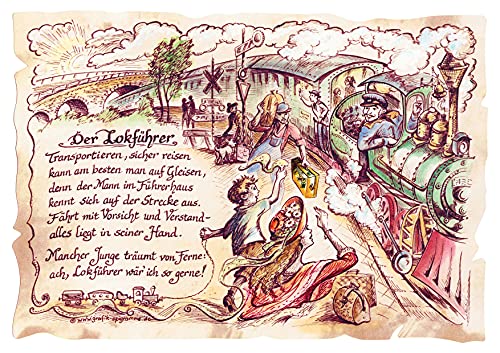 Der Lokführer
Transportieren, sicher reisen
kann am besten man auf Gleisen,
denn der Mann im Führerhaus
kennt sich auf der Strecke aus.
Fährt mit Vorsicht und Verstand-
alles liegt in seiner Hand.
Mancher Junge träumt von Ferne:
ach, Lokführer wär ich so gerne!